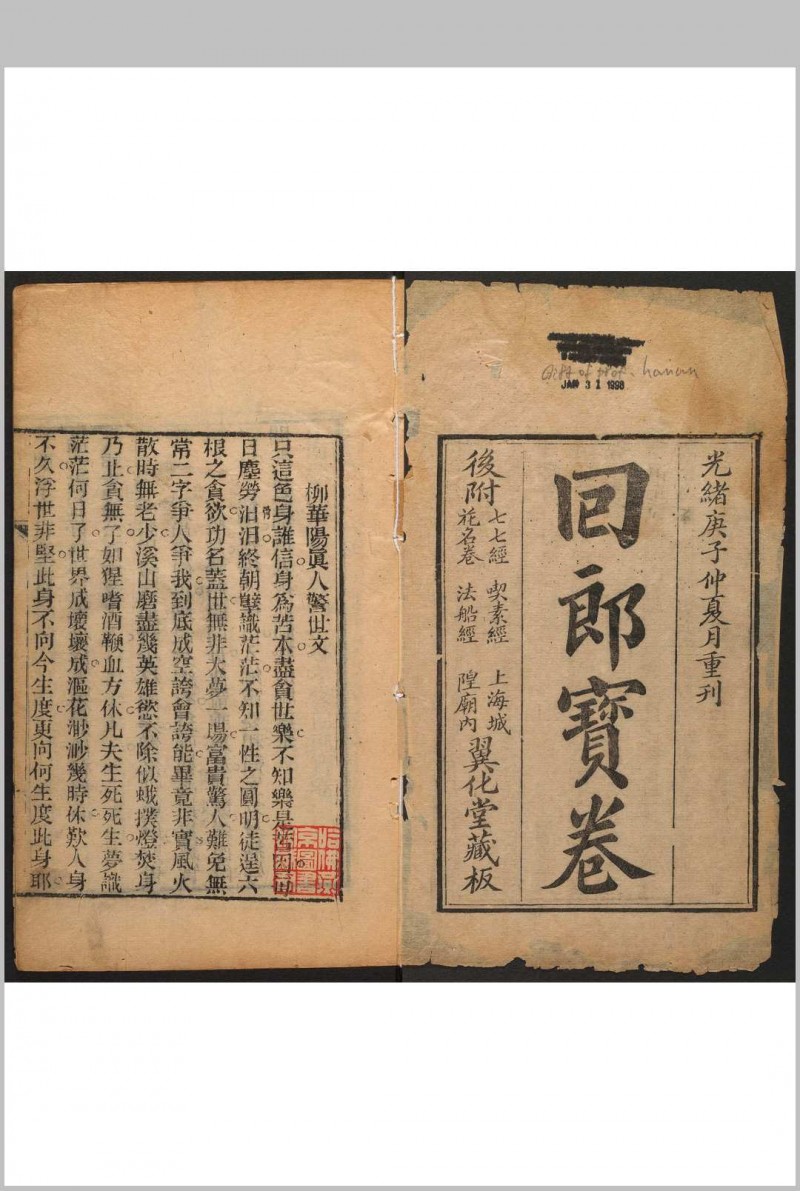 光緒庚子仲夏月重刊
回郎寶卷
後附
七七經 喫素經
花名卷 法船經
上海城
隍廟內
翼化堂藏板
JAN 31 1998
Gift of Prof. Hanan
柳華陽眞人警世文
只這色身誰信身為苦本盡貪世樂不知樂是苦因
日塵勞汨汨終朝孽識茫茫不知一性之圓明徒逞六
根之貪欲功名蓋世無非大夢一場富貴驚人難免無
常二字爭人爭我到底成空誇會誇能畢竟非實風火
散時無老少溪山磨盡幾英雄慾不除似蛾撲燈焚身
乃止貪無了如猩嗜酒鞭血方休凡夫生死死生夢識
茫茫何日了世界成壞壞成漚花渺渺幾時休歎人身
不久浮世非堅此身不向今生度更向何生度此身耶